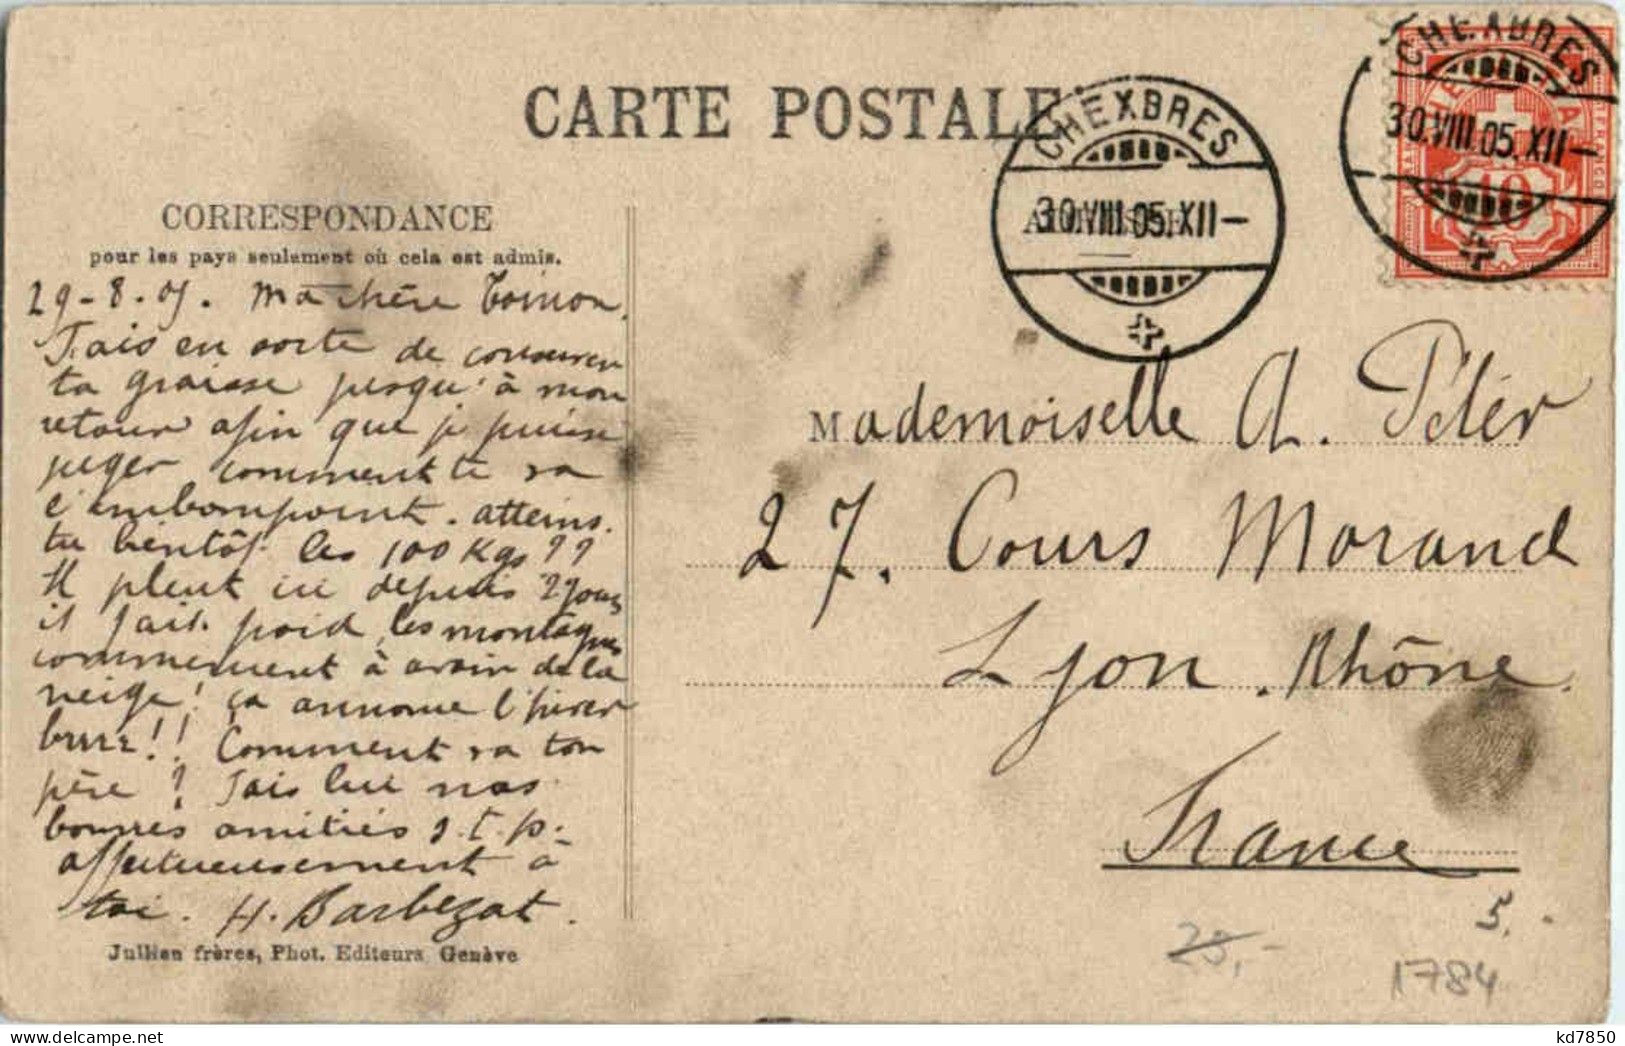 CARTE POSTALE
CORRESPONDANCE
pour les pays seulement où cela est admis.
29-8.05. Ma chère Toinon.
Fais en sorte de conserver
ta graisse jusqu'à mon
retour afin que je puisse
juger comment te va
l'embonpoint. atteins.
tu bientôt les 100 Kgs ??
Il pleut ici depuis 2 jours
il fait froid, les montagnes
commencent à avoir de la
neige! ça annonce l'hiver
brrr!! Comment va ton
père? Fais lui nos
bonnes amitiés s.t.p.
affectueusement à
toi. H. Barbezat.
Jullien frères, Phot. Editeurs Genève
CHEXBRES
30.VIII.05.XII-
CHEXBRES
30.VIII.05.XII-
FRANCO
10
Mademoiselle A. Péter
27, Cours Morand
Lyon. Rhône.
France
5.-
25,-
1784
kd7850